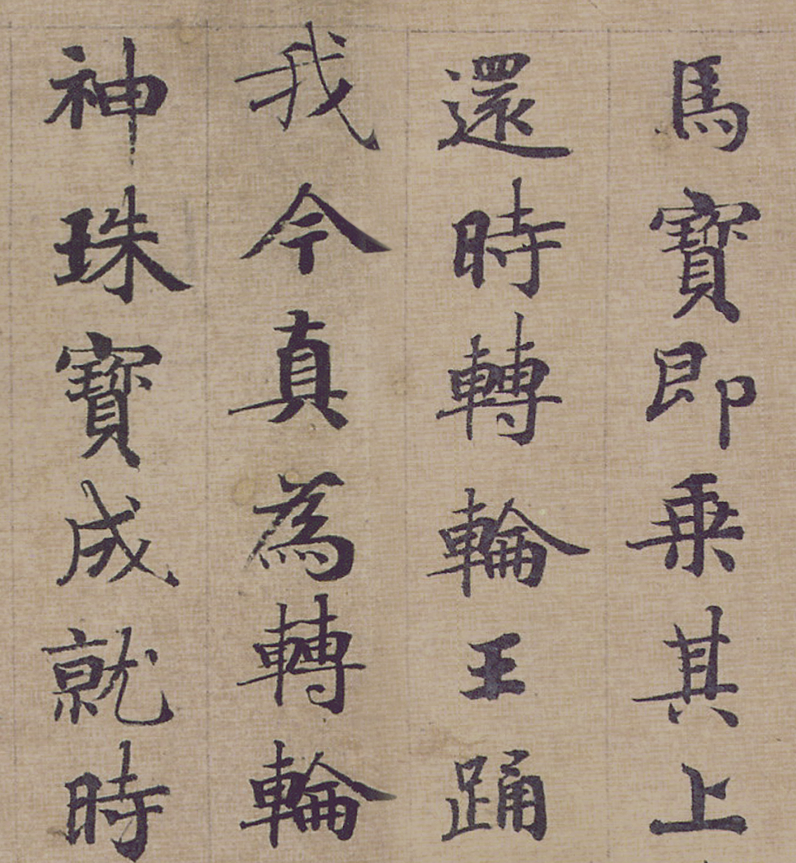 馬寶即乗其上
還時轉輪王踊
我今真為轉輪
神珠寶成就時